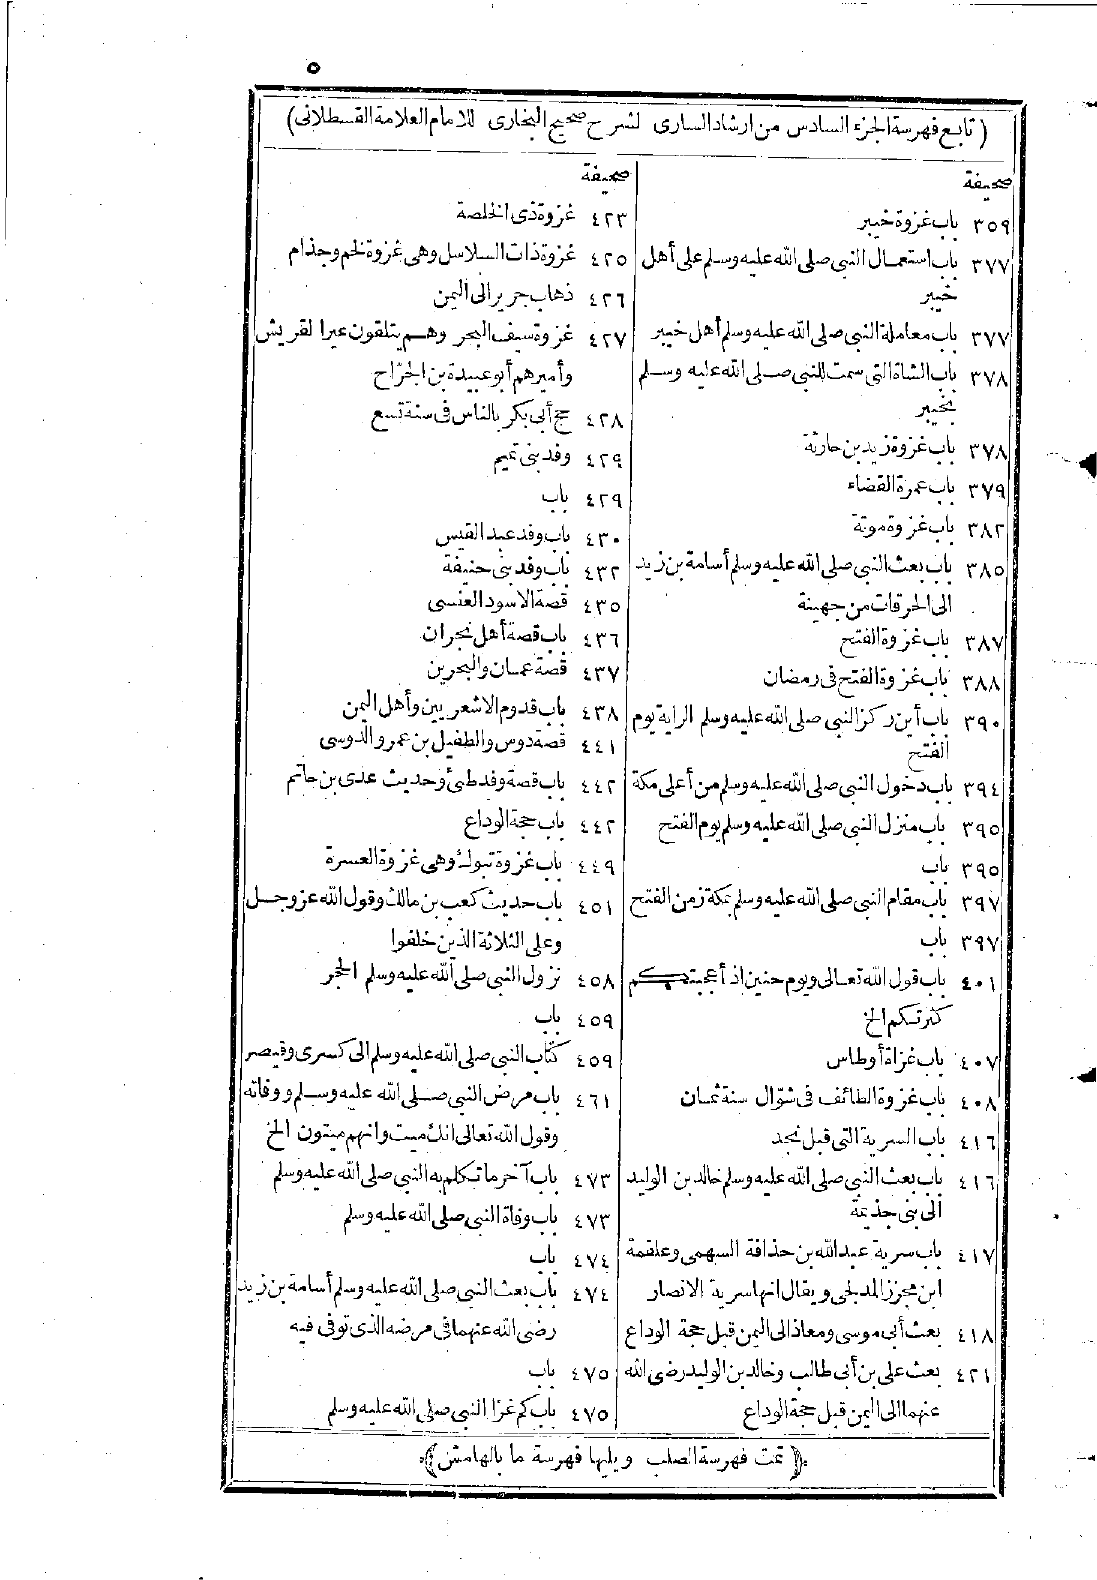 ٥
(تابع فهرسة الجزء السادس من ارشاد السارى لشرح صحيح البخارى للامام العلامة القسطلانى)
صحيفة
٣٥٩ باب غزوة خيبر
٣٧٧ باب استعمال النبى صلى الله عليه وسلم على أهل
خيبر
٣٧٧ باب معاملة النبى صلى الله عليه وسلم أهل خيبر
٣٧٨ باب الشاة التى سمت للنبى صلى الله عليه وسلم
بخيبر
٣٧٨ باب غزوة زيد بن حارثة
٣٧٩ باب عمرة القضاء
٣٨٢ باب غزوة موتة
٣٨٥ باب بعث النبى صلى الله عليه وسلم أسامة بن زيد
الى الحرقات من جهينة
٣٨٧ باب غزوة الفتح
٣٨٨ باب غزوة الفتح فى رمضان
٣٩٠ باب أين ركز النبى صلى الله عليه وسلم الراية يوم
الفتح
٣٩٤ باب دخول النبى صلى الله عليه وسلم من أعلى مكة
٣٩٥ باب منزل النبى صلى الله عليه وسلم يوم الفتح
٣٩٥ باب
٣٩٧ باب مقام النبى صلى الله عليه وسلم بمكة زمن الفتح
٣٩٧ باب
٤٠١ باب قول الله تعالى ويوم حنين اذ أعجبتكم
كثرتكم الخ
٤٠٧ باب غزاة أوطاس
٤٠٨ باب غزوة الطائف فى شوّال سنة ثمان
٤١٦ باب السرية التى قبل نجد
٤١٦ باب بعث النبى صلى الله عليه وسلم خالد بن الوليد
الى بنى جذيمة
٤١٧ باب سرية عبد الله بن حذافة السهمى وعلقمة
ابن مجزز المدلجى ويقال انها سرية الانصار
٤١٨ بعث أبى موسى ومعاذ الى اليمن قبل حجة الوداع
٤٢١ بعث على بن أبى طالب وخالد بن الوليد رضى الله
عنهما الى اليمن قبل حجة الوداع
صحيفة
٤٢٣ غزوة ذى الخلصة
٤٢٥ غزوة ذات السلاسل وهى غزوة لخم وجذام
٤٢٦ ذهاب جرير الى اليمن
٤٢٧ غزوة سيف البحر وهم يتلقون عيرا لقريش
وأميرهم أبو عبيدة بن الجرّاح
٤٢٨ حج أبى بكر بالناس فى سنة تسع
٤٢٩ وفد بنى تميم
٤٢٩ باب
٤٣٠ باب وفد عبد القيس
٤٣٢ باب وفد بنى حنيفة
٤٣٥ قصة الاسود العنسى
٤٣٦ باب قصة أهل نجران
٤٣٧ قصة عمان والبحرين
٤٣٨ باب قدوم الاشعريين وأهل اليمن
٤٤١ قصة دوس والطفيل بن عمرو الدوسى
٤٤٢ باب قصة وفد طئ وحديث عدى بن حاتم
٤٤٢ باب حجة الوداع
٤٤٩ باب غزوة تبوك وهى غزوة العسرة
٤٥١ باب حديث كعب بن مالك وقول الله عز وجل
وعلى الثلاثة الذين خلفوا
٤٥٨ نزول النبى صلى الله عليه وسلم الحجر
٤٥٩ باب
٤٥٩ كتاب النبى صلى الله عليه وسلم الى كسرى وقيصر
٤٦١ باب مرض النبى صلى الله عليه وسلم ووفاته
وقول الله تعالى انك ميت وانهم ميتون الخ
٤٧٣ باب آخر ما تكلم به النبى صلى الله عليه وسلم
٤٧٣ باب وفاة النبى صلى الله عليه وسلم
٤٧٤ باب
٤٧٤ باب بعث النبى صلى الله عليه وسلم أسامة بن زيد
رضى الله عنهما فى مرضه الذى توفى فيه
٤٧٥ باب
٤٧٥ باب كم غزا النبى صلى الله عليه وسلم
(تمت فهرسة الصلب ويليها فهرسة ما بالهامش)